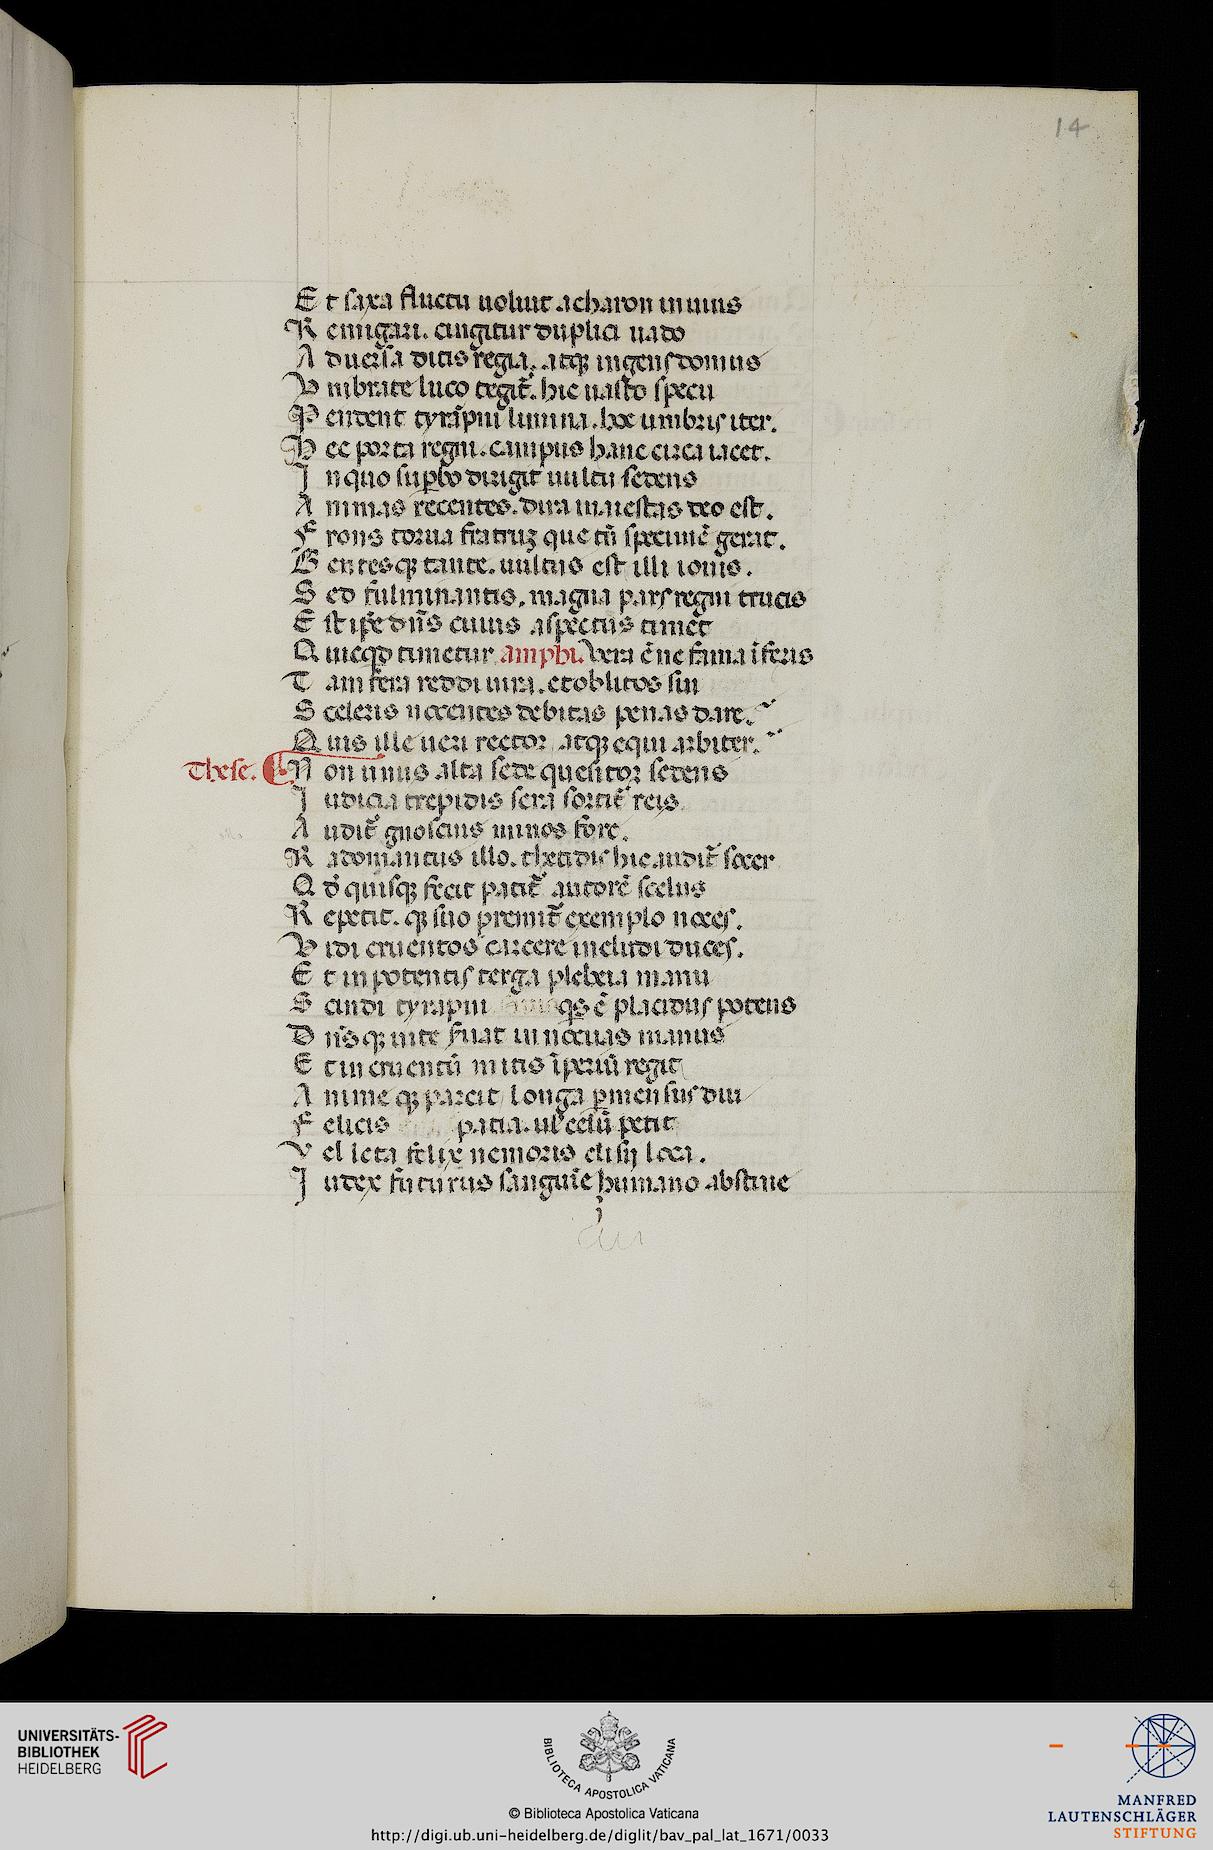 14
E t saxa fluctu uoluit acharon inuius
R emigari. cingitur duplici uado
A duer̃sa ditis regia. atqꝫ ingens domus
V mbrante luco tegit᷑. hic uasto specu
P endent tyrãpni lumina. hoc umbris iter.
H ec porta regni. campus hanc circa iacet.
I n quo suꝑbo dirigit uultu sedens
A nimas recentes. dira maiestas deo est.
F rons torua fratruꝫ que tñ specimẽ gerat.
G entesqꝫ tante. uultus est illi iouis.
S ed fulminantis. magna pars regni trucis
E st ip̃e dñs cuius aspectus timet
Q uicq̃d timetur amphi. Vera ẽ ne fama ĩferis
T am fera reddi iura. et oblitos sui
S celeris nocentes debitas penas dare.
Q uis ille ueri rector atqꝫ equi arbiter.
These. N on unus alta sede quesitor sedens
I udicia trepidis sera sortit᷑ reis.
A udit᷑ gnoscius minos foro.
R adomantus illo. thetidis hic audit᷑ socer
Q d̾ quisqꝫ fecit patit᷑ autorẽ scelus
R epetit. qꝫ suo premit᷑ exemplo nocẽs.
V idi cruentos carcere includi duces.
E t inpotentis terga plebeia manu
S cindi tyrapni qͥs ẽ placidus potens
D ñsqꝫ uite fuat innocuas manus
E t incruentũ mitis ĩperiũ regit
A nime qꝫ parcit longa ꝑmensus diu
F elicis patia. ul̾ celũ petit
V el leta felix nemoris elisij loca.
I udex futurus sanguĩe humano abstine
UNIVERSITÄTS-
BIBLIOTHEK
HEIDELBERG
BIBLIOTECA APOSTOLICA VATICANA
© Biblioteca Apostolica Vaticana
http://digi.ub.uni-heidelberg.de/diglit/bav_pal_lat_1671/0033
MANFRED
LAUTENSCHLÄGER
STIFTUNG